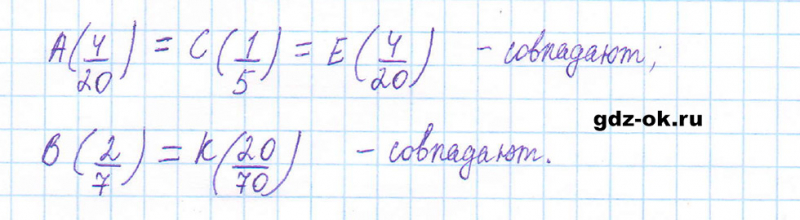 A(4/20) = C(1/5) = E(4/20) - совпадают;
gdz-ok.ru
B(2/7) = K(20/70) - совпадают.